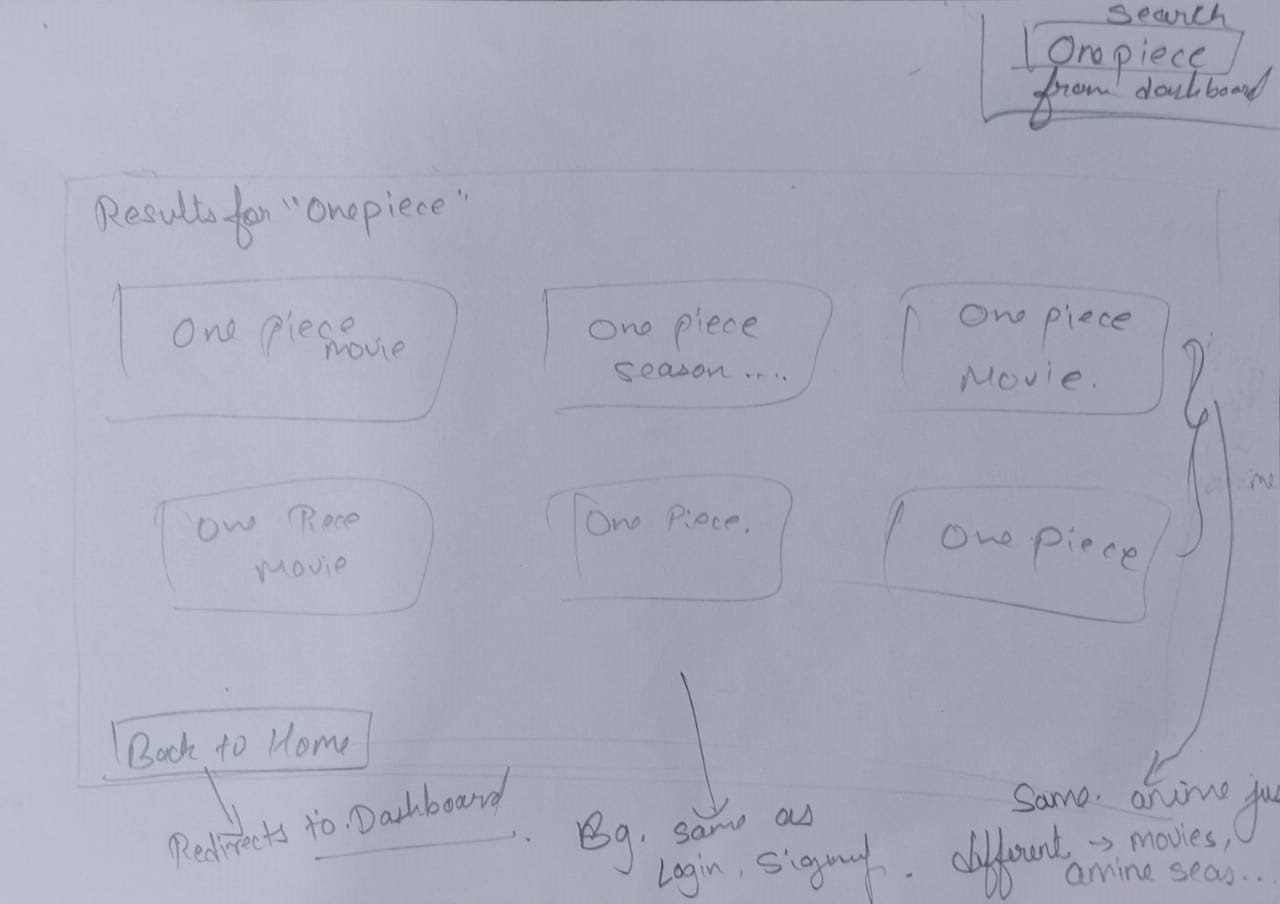 Search
One piece
from dashboard
Results for "Onepiece"
One piece
movie
One piece
season ....
One piece
Movie.
One Piece
Movie
One Piece.
One piece
Back to Home
Redirects to Dashboard.
Bg. same as
Login, Signup.
Same. anime jus
different → movies,
amine seas...